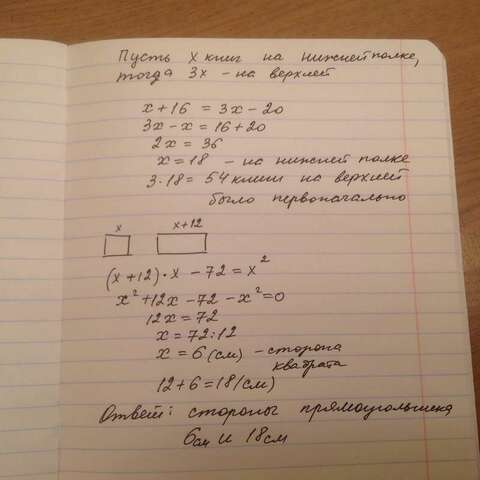 Пусть х книг на нижней полке,
тогда 3х – на верхней
х+16 = 3х – 20
3х – х = 16+20
2х = 36
х = 18 – на нижней полке
3·18 = 54 книги на верхней
было первоначально
х х+12
(х+12)·х – 72 = х²
х²+12х –72 – х² =0
12х = 72
х = 72:12
х = 6 (см) – сторона
квадрата
12+6 = 18 (см)
Ответ: стороны прямоугольника
6см и 18см